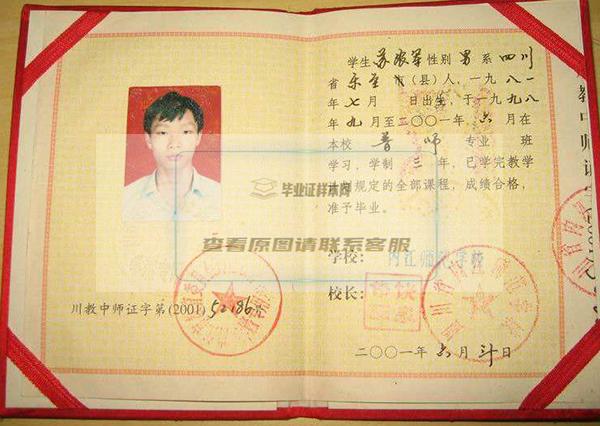 学生苏农军性别男系四川
省乐至市(县)人,一九八一
年七月 日出生,于一九九八
年九月至二〇〇一年六月在
本校普师专业 班
学习,学制三年,已学完教学
计划规定的全部课程,成绩合格,
准予毕业。
毕业证样本网
查看原图请联系客服
学校:内江师范学校
校长:
川教中师证字第(2001)52186号
二〇〇一年六月 日